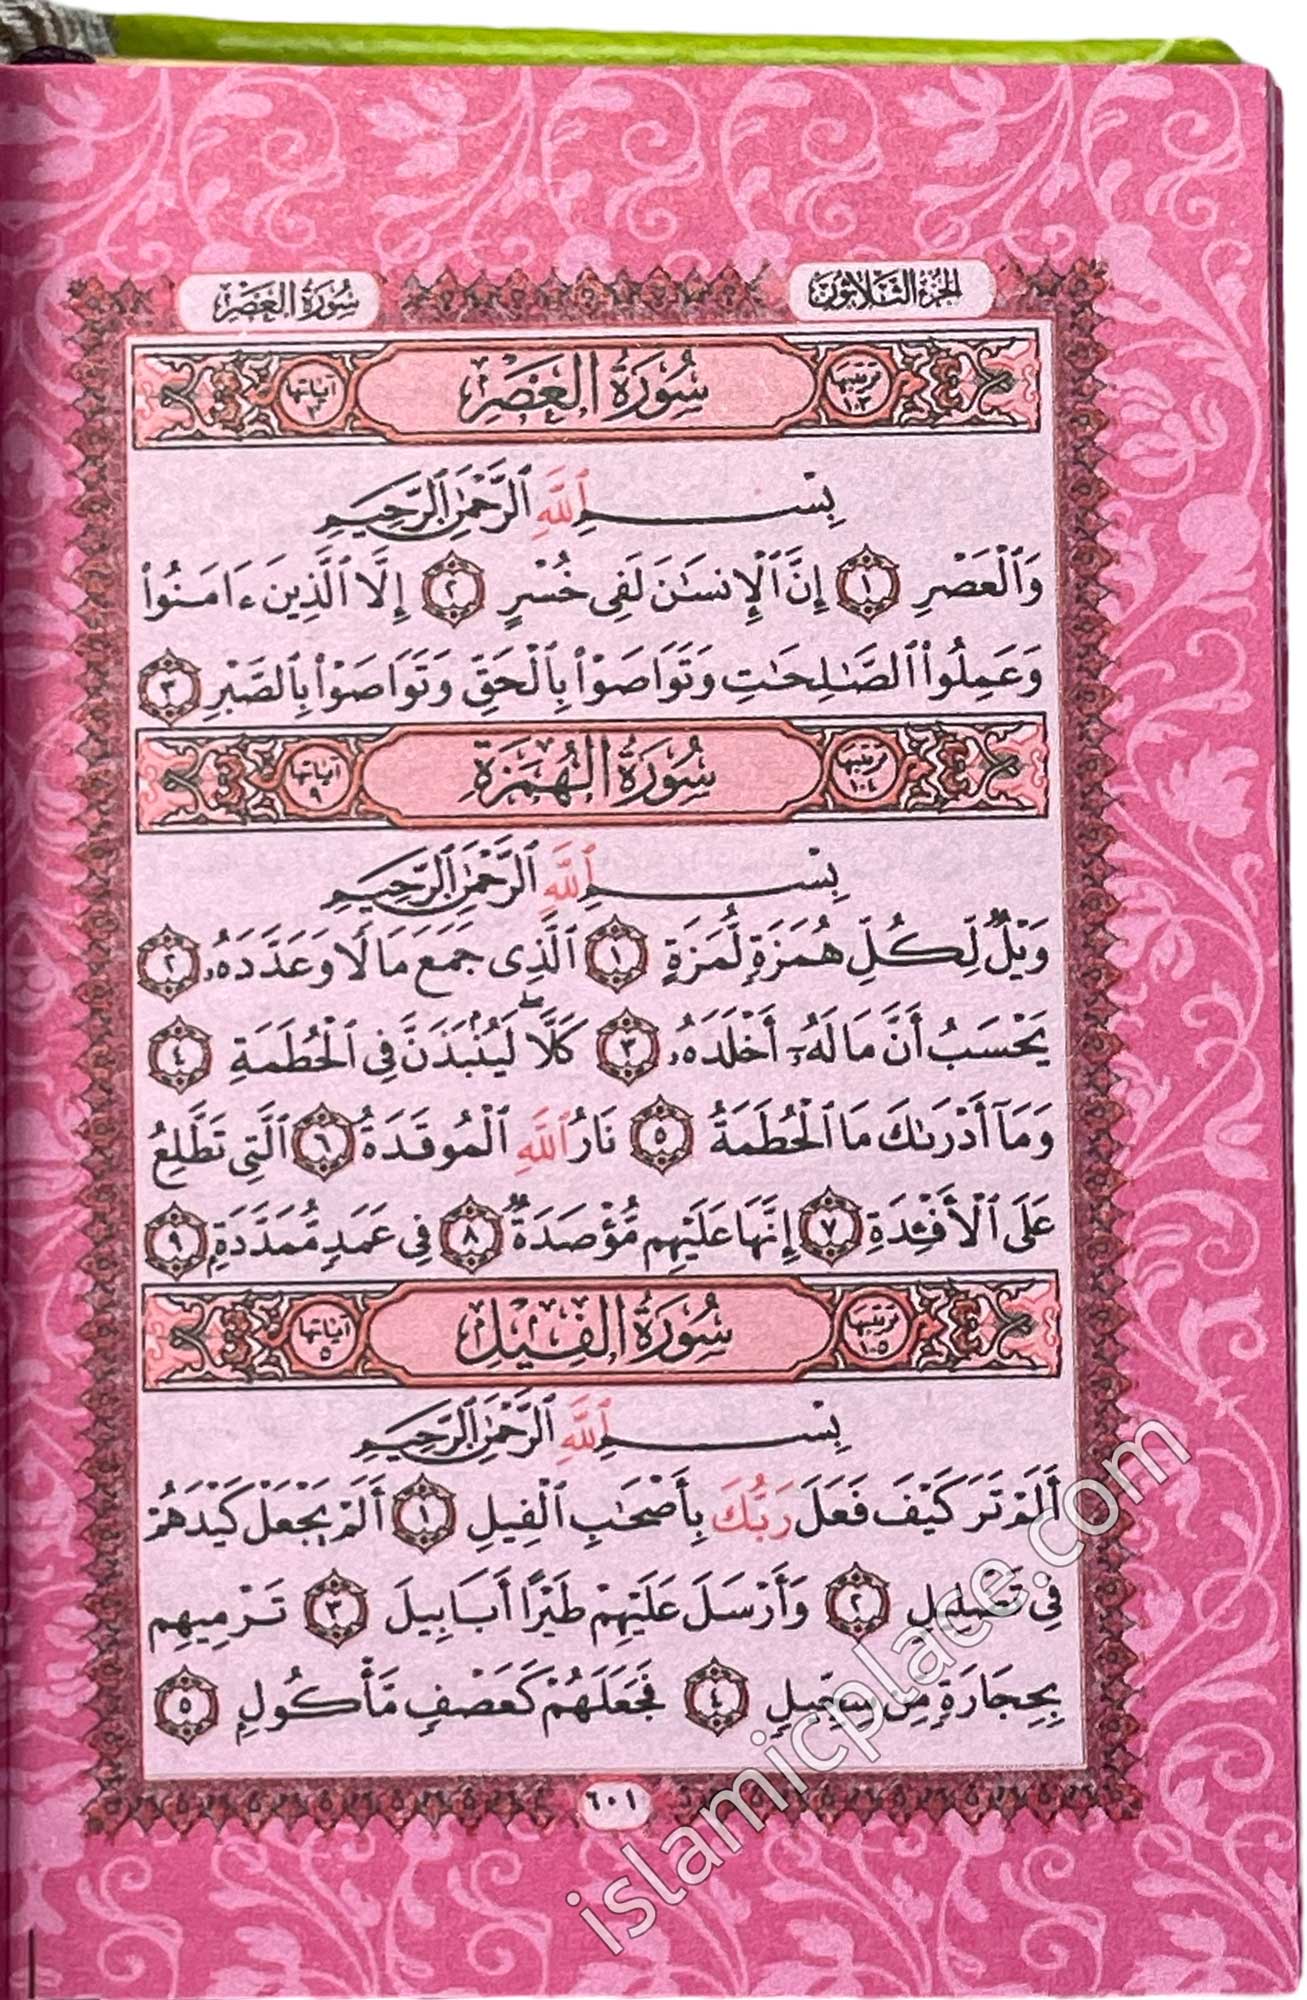 الجزء الثلاثون
سورة العصر
ترتيبها ١٠٣
سورة العصر
آياتها ٣
بِسْمِ ٱللَّهِ ٱلرَّحْمَٰنِ ٱلرَّحِيمِ
وَٱلْعَصْرِ ١ إِنَّ ٱلْإِنسَٰنَ لَفِى خُسْرٍ ٢ إِلَّا ٱلَّذِينَ ءَامَنُوا۟
وَعَمِلُوا۟ ٱلصَّٰلِحَٰتِ وَتَوَاصَوْا۟ بِٱلْحَقِّ وَتَوَاصَوْا۟ بِٱلصَّبْرِ ٣
ترتيبها ١٠٤
سورة الهمزة
آياتها ٩
بِسْمِ ٱللَّهِ ٱلرَّحْمَٰنِ ٱلرَّحِيمِ
وَيْلٌ لِّكُلِّ هُمَزَةٍ لُّمَزَةٍ ١ ٱلَّذِى جَمَعَ مَالًا وَعَدَّدَهُۥ ٢
يَحْسَبُ أَنَّ مَالَهُۥٓ أَخْلَدَهُۥ ٣ كَلَّا ۖ لَيُنۢبَذَنَّ فِى ٱلْحُطَمَةِ ٤
وَمَآ أَدْرَىٰكَ مَا ٱلْحُطَمَةُ ٥ نَارُ ٱللَّهِ ٱلْمُوقَدَةُ ٦ ٱلَّتِى تَطَّلِعُ
عَلَى ٱلْأَفْـِٔدَةِ ٧ إِنَّهَا عَلَيْهِم مُّؤْصَدَةٌ ٨ فِى عَمَدٍ مُّمَدَّدَةٍۭ ٩
ترتيبها ١٠٥
سورة الفيل
آياتها ٥
بِسْمِ ٱللَّهِ ٱلرَّحْمَٰنِ ٱلرَّحِيمِ
أَلَمْ تَرَ كَيْفَ فَعَلَ رَبُّكَ بِأَصْحَٰبِ ٱلْفِيلِ ١ أَلَمْ يَجْعَلْ كَيْدَهُمْ
فِى تَضْلِيلٍ ٢ وَأَرْسَلَ عَلَيْهِمْ طَيْرًا أَبَابِيلَ ٣ تَرْمِيهِم
بِحِجَارَةٍ مِّن سِجِّيلٍ ٤ فَجَعَلَهُمْ كَعَصْفٍ مَّأْكُولٍۭ ٥
٦٠١
islamicplace.com